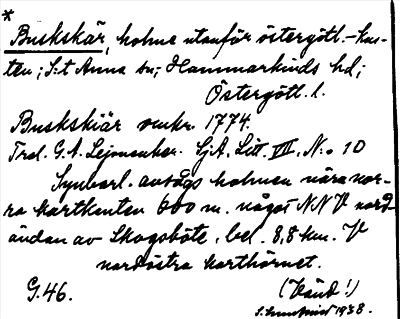 *
Buskskär, holme utanför östergötl.-kus-
ten; S:t Anna sn; Hammarkinds hd;
Östergötl. l.
Buskskiär omkr. 1774.
Trol. G. A. Lejonanker. SjA, Litt. VII, No 10
Synbarl. avsågs holmen nära nor-
ra kartkanten 600 m. något NNV nord-
ändan av Skogsböte, bel. 8,8 km. V
nordöstra karthörnet.
G. 46. (Vänd!)
1938.